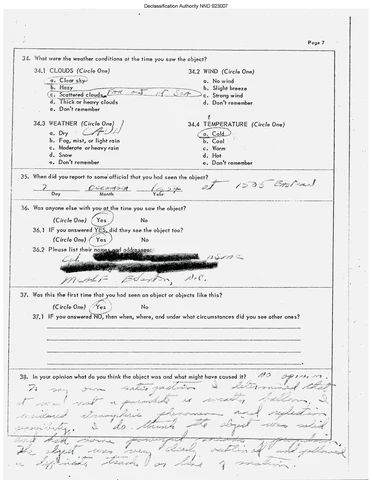 Declassification Authority NND 923007
Page 7
34. What were the weather conditions at the time you saw the object?
34.1 CLOUDS (Circle One)
34.2 WIND (Circle One)
a. Clear sky
a. No wind
b. Hazy
b. Slight breeze
c. Scattered clouds
c. Strong wind
d. Thick or heavy clouds
d. Don't remember
e. Don't remember
34.3 WEATHER (Circle One)
34.4 TEMPERATURE (Circle One)
a. Dry
a. Cold
b. Fog, mist, or light rain
b. Cool
c. Moderate or heavy rain
c. Warm
d. Snow
d. Hot
e. Don't remember
e. Don't remember
35. When did you report to some official that you had seen the object?
7 December at 1535
Day Month Year
36. Was anyone else with you at the time you saw the object?
(Circle One) Yes No
36.1 IF you answered YES, did they see the object too?
(Circle One) Yes No
36.2 Please list their names and addresses:
N.C.
37. Was this the first time that you had seen an object or objects like this?
(Circle One) Yes No
37.1 IF you answered NO, then when, where, and under what circumstances did you see other ones?
38. In your opinion what do you think the object was and what might have caused it? No opinion.
To my own satisfaction I determined that
it was not a parachute or weather balloon, I
considered atmospheric phenomena and reflection
I do think the object was solid
and had some powerful
The object was very clearly outlined and followed
a definite track or line of motion.